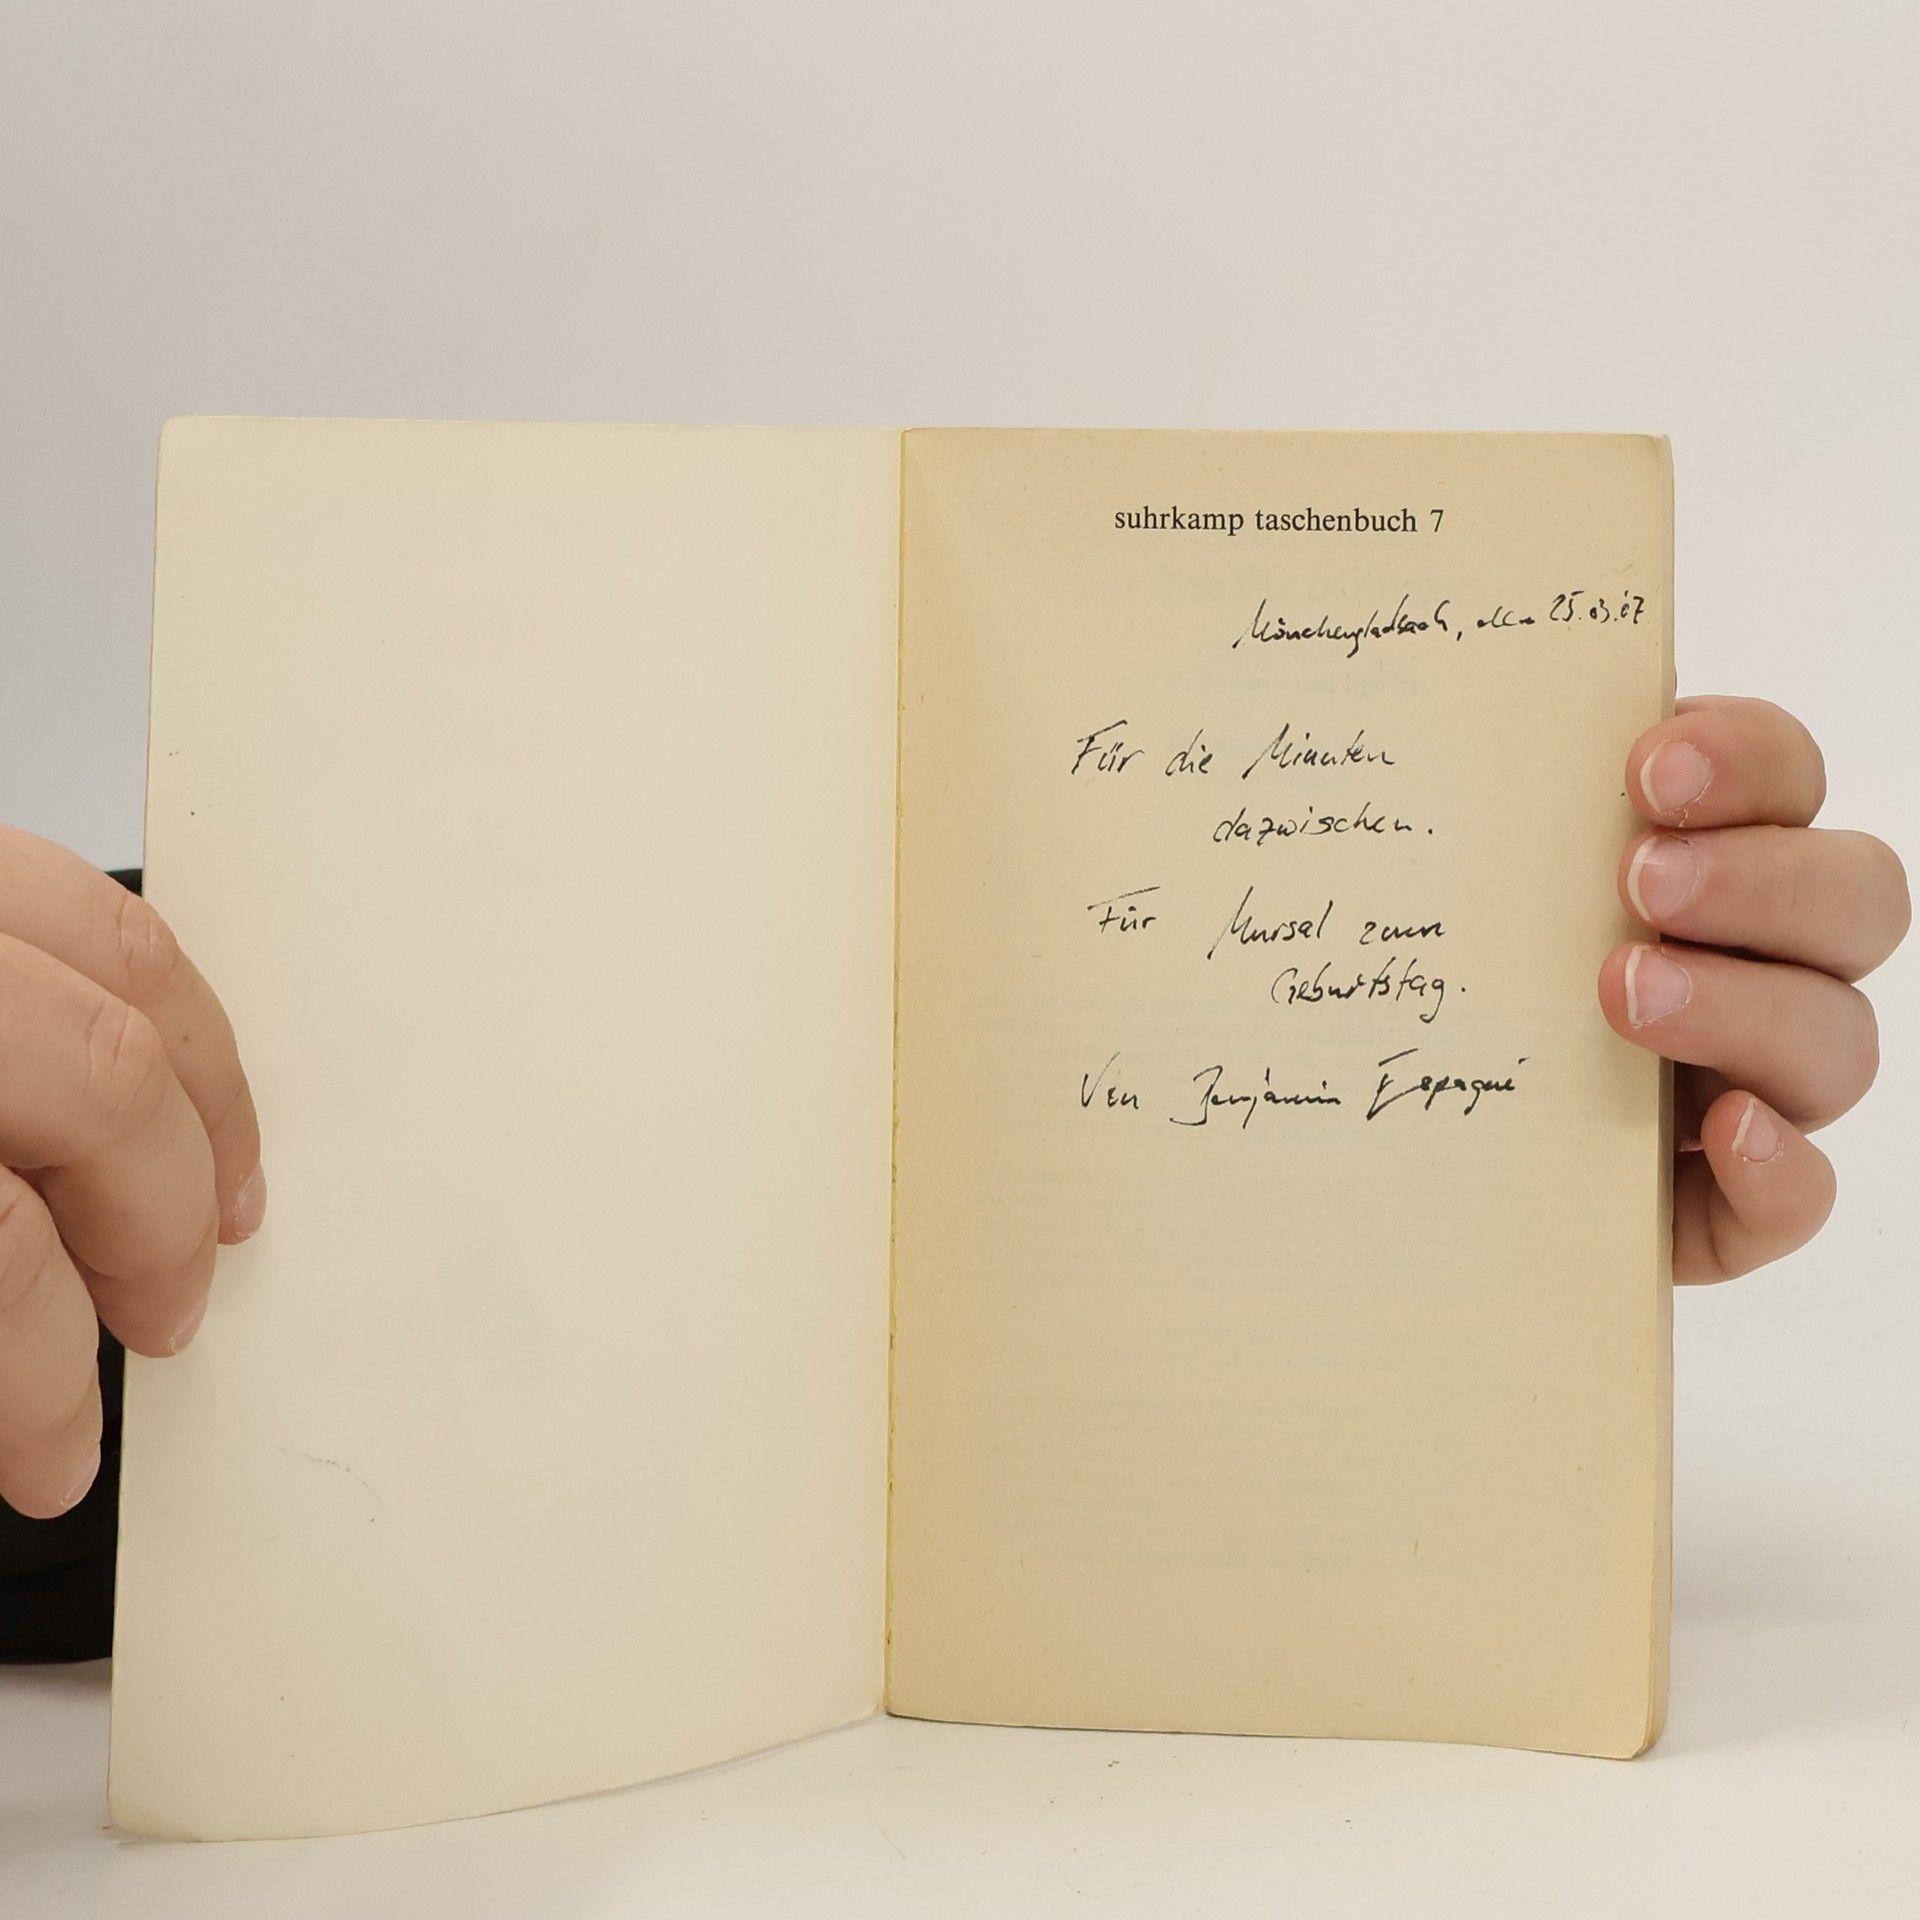 suhrkamp taschenbuch 7
Mönchengladbach, den 25.03.'07
Für die Minuten
dazwischen.
Für Mursal zum
Geburtstag.
Von Benjamin